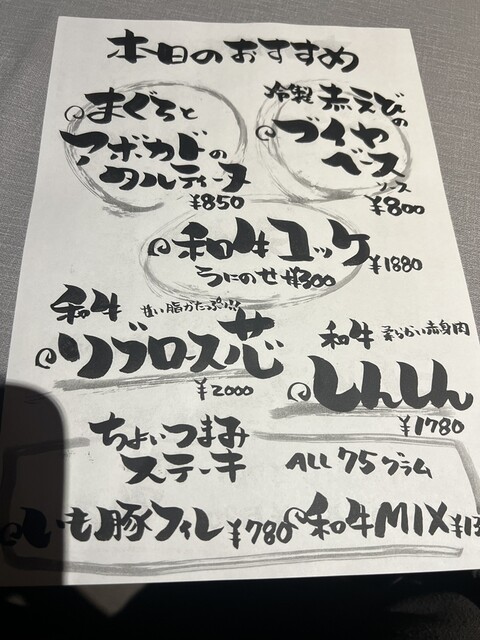 本日のおすすめ
まぐろと
アボカドの
タルティーヌ
¥850
冷製 赤えびの
ブイヤ
ベース
ソース
¥800
和牛ユッケ ¥1880
うにのせ ¥300
和牛 甘い脂がたっぷり!
リブロース芯
¥2000
和牛 柔らかい赤身肉
しんしん
¥1780
ちょいつまみ
ステーキ ALL 75グラム
いも豚フィレ ¥780
和牛MIX